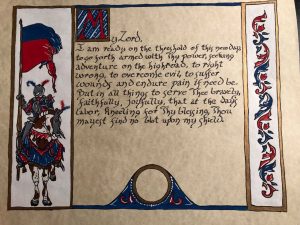 My Lord,
I am ready on the threshold of this new day
to go forth armed with Thy power, seeking
adventure on the highroad, to right
wrong, to overcome evil, to suffer
wounds and endure pain if need be,
but in all things to serve Thee bravely,
faithfully, joyfully, that at the day's
labor, kneeling for Thy blessing, Thou
mayest find no blot upon my shield.